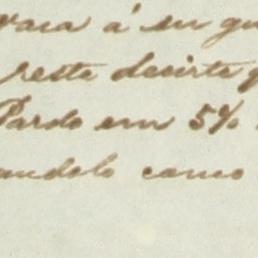 vara á su gu
reste decirte q
Pardo em 5%
andolo como